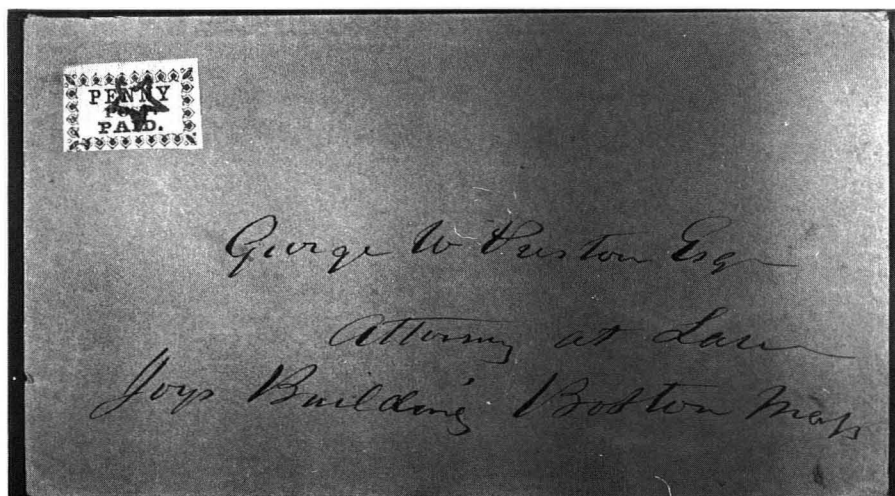 PENNY
POST
PAID.
George W Preston Esq
Attorney at Law
Joys Building Boston Mass